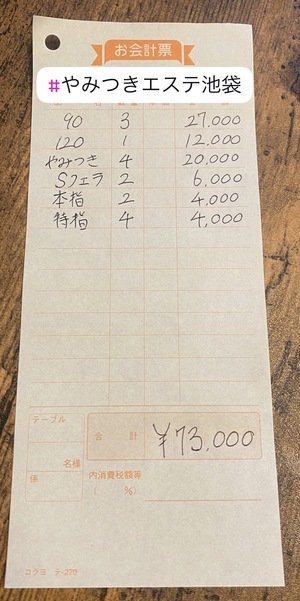 お会計票
#やみつきエステ池袋
90 3 27,000
120 1 12,000
やみつき 4 20,000
Sフェラ 2 6,000
本指 2 4,000
特指 4 4,000
テーブル
合 計 ¥73,000
名様
係
内消費税額等
( %)
コクヨ テ-220